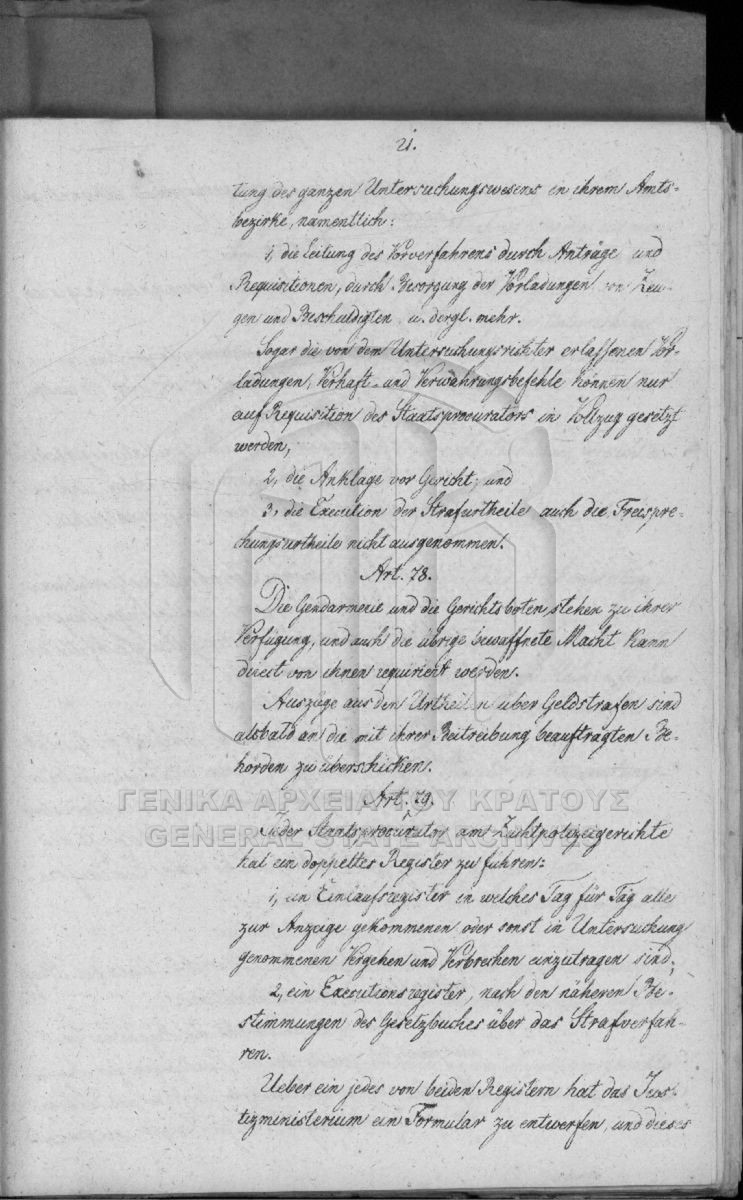 21.
tung des ganzen Untersuchungswesens in ihrem Amts-
bezirke, namentlich:
1, die Leitung des Vorverfahrens durch Anträge und
Requisitionen, durch Besorgung der Vorladungen von Zeu-
gen und Beschuldigten u. dergl. mehr.
Sogar die von dem Untersuchungsrichter erlassenen Vor-
ladungen, Verhaft- und Verwahrungsbefehle können nur
auf Requisition des Staatsprocurators in Vollzug gesetzt
werden,
2, die Anklage vor Gericht; und
3, die Execution der Strafurtheile auch die Freispre-
chungsurtheile nicht ausgenommen.
Art. 78.
Die Gendarmerie und die Gerichtsboten, stehen zu ihrer
Verfügung, und auch die übrige bewaffnete Macht kann
direct von ihnen requirirt werden.
Auszüge aus den Urtheilen über Geldstrafen sind
alsbald an die mit ihrer Beitreibung beauftragten Be-
horden zu überschicken.
ΓΕΝΙΚΑ ΑΡΧΕΙΑ ΤΟΥ ΚΡΑΤΟΥΣ
Art. 79.
GENERAL STATE ARCHIVES
Jeder Staatsprocurator am Zuchtpolizeigerichte
hat ein doppeltes Register zu führen:
1, ein Einlaufsregister in welches Tag für Tag alle
zur Anzeige gekommenen oder sonst in Untersuchung
genommenen Vergehen und Verbrechen einzutragen sind;
2, ein Executionsregister, nach den näheren Be-
stimmungen des Gesetzbuches über das Strafverfah-
ren.
Ueber ein jedes von beiden Registern hat das Jus-
tizministerium ein Formular zu entwerfen, und dieses